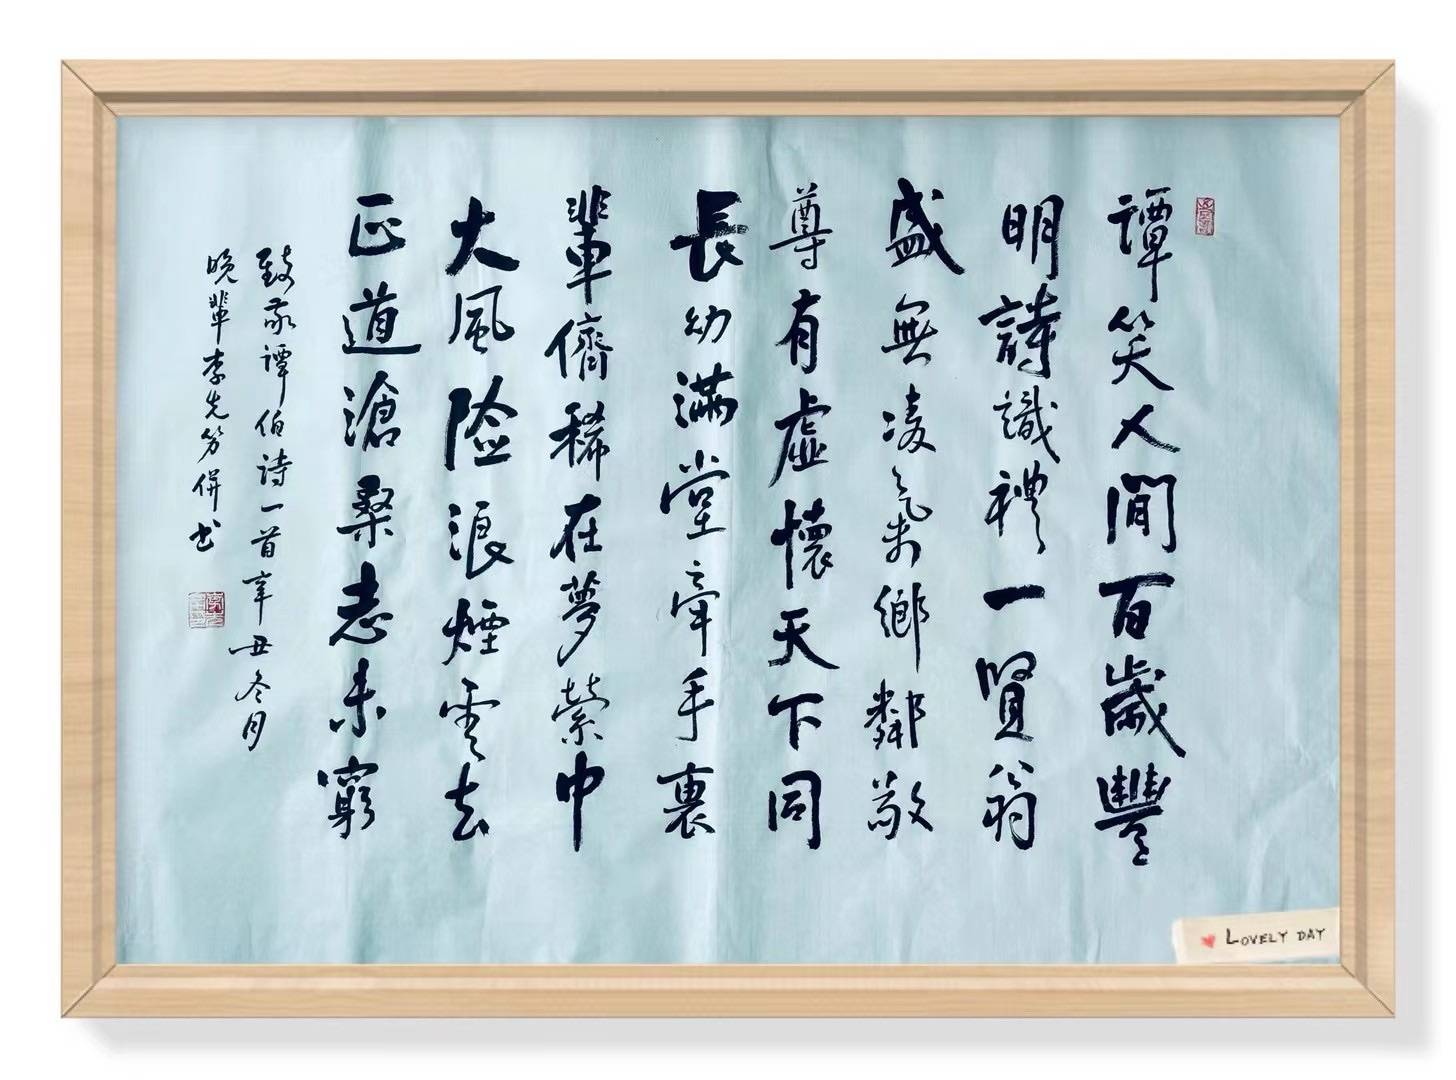 譚笑人間百歲豐
明詩識禮一賢翁
盛無凌氣鄉鄰敬
尊有虛懷天下同
長幼滿堂牽手裏
輩儕稀在夢縈中
大風险浪煙雲去
正道滄桑志未窮
致敬譚伯詩一首辛丑冬月
晚輩李先芳併书
LOVELY DAY